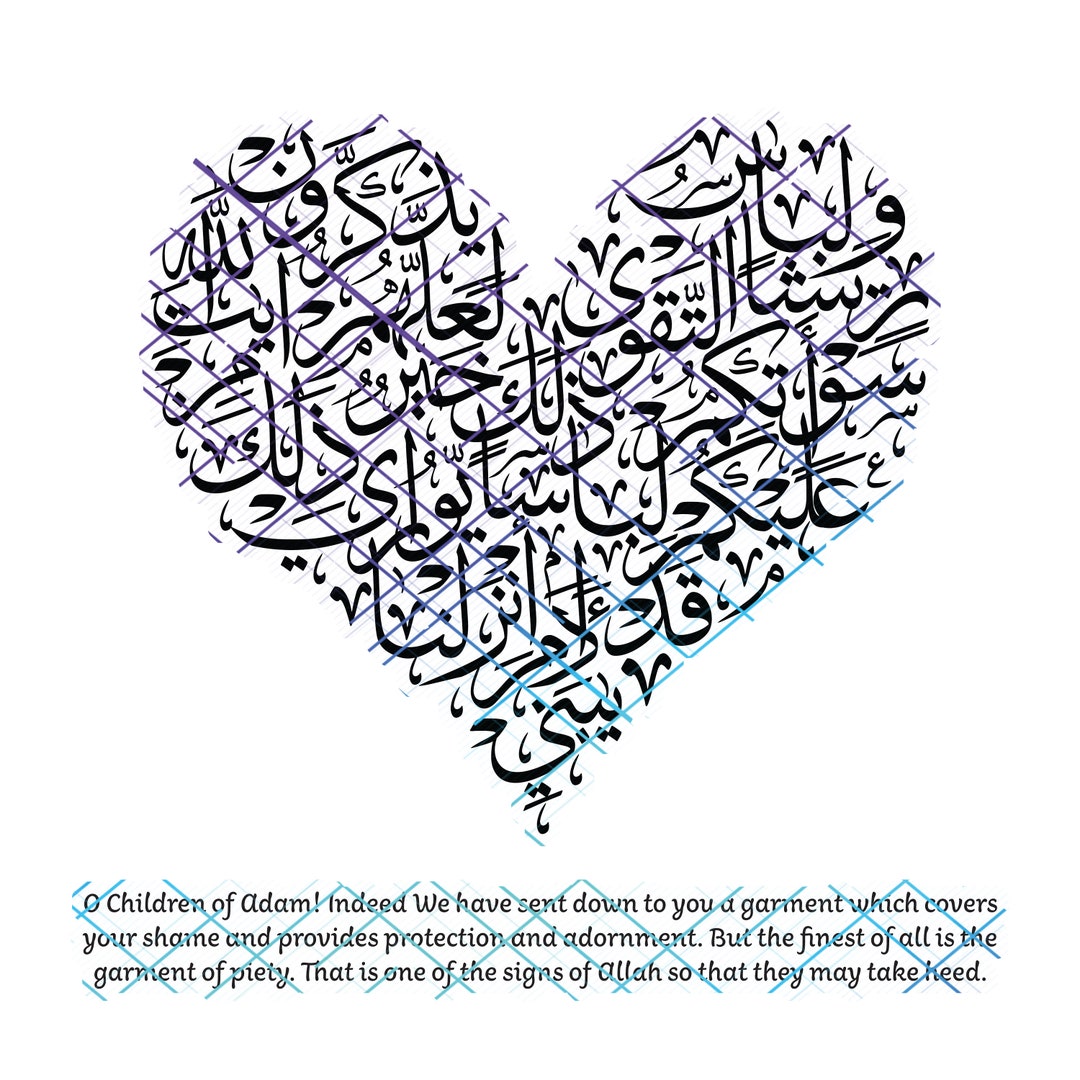 يبني ءادم قد أنزلنا
عليكم لباسا يواري
سوءتكم وريشا
ولباس التقوى ذلك خير
ذلك من ءايت الله
لعلهم يذكرون
O Children of Adam! Indeed We have sent down to you a garment which covers
your shame and provides protection and adornment. But the finest of all is the
garment of piety. That is one of the signs of Allah so that they may take heed.